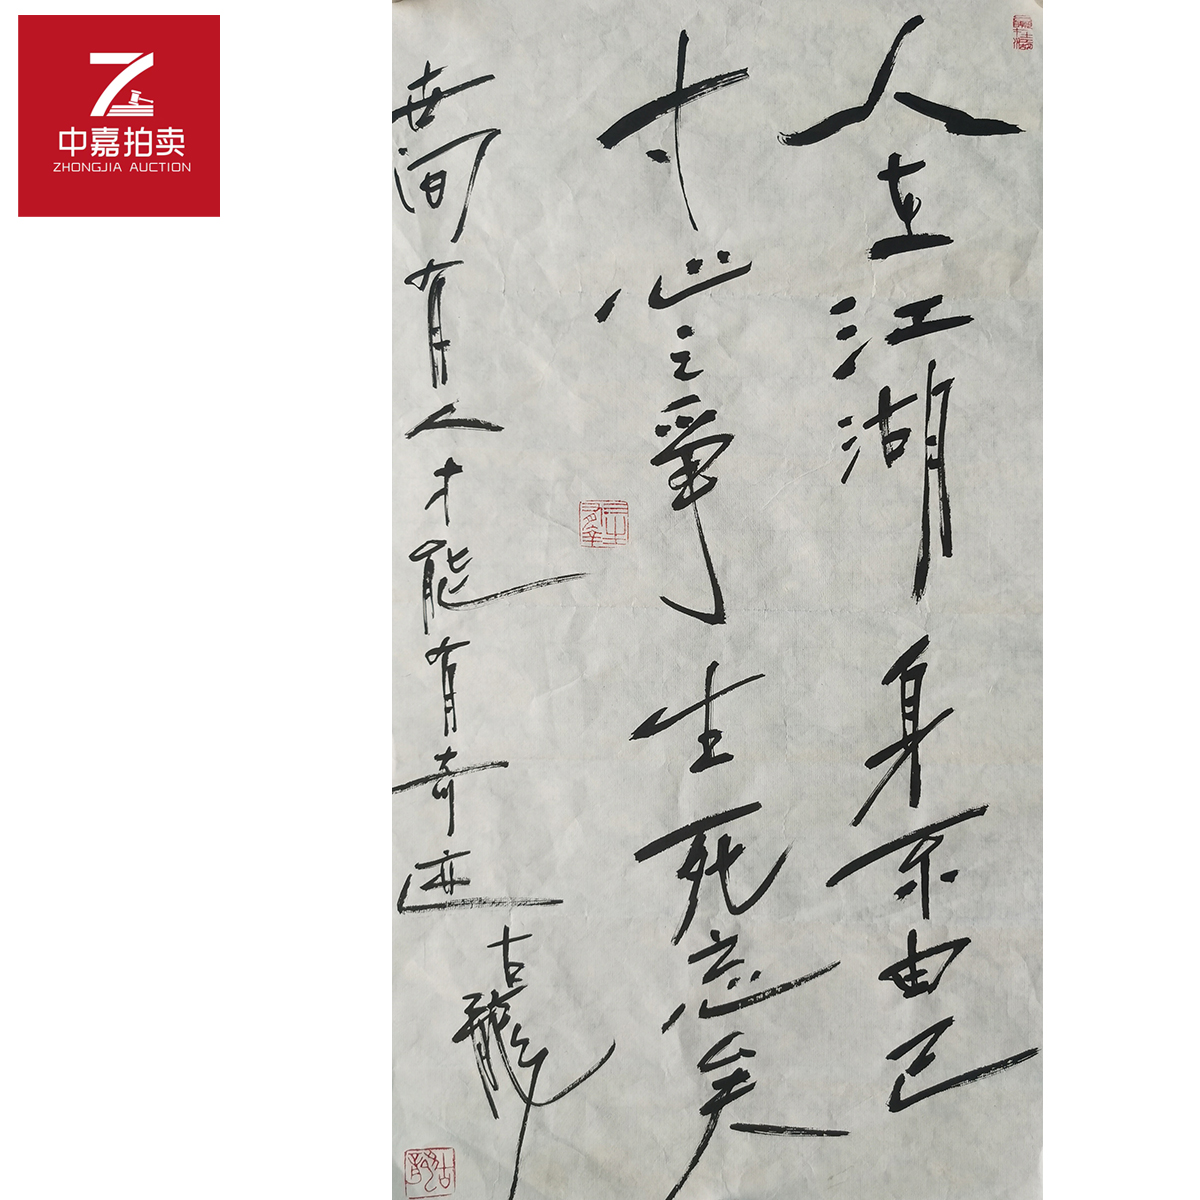 中嘉拍卖
ZHONGJIA AUCTION
人在江湖身不由己
寸心之争生死忘矣
世间有人才能有奇迹
古龍